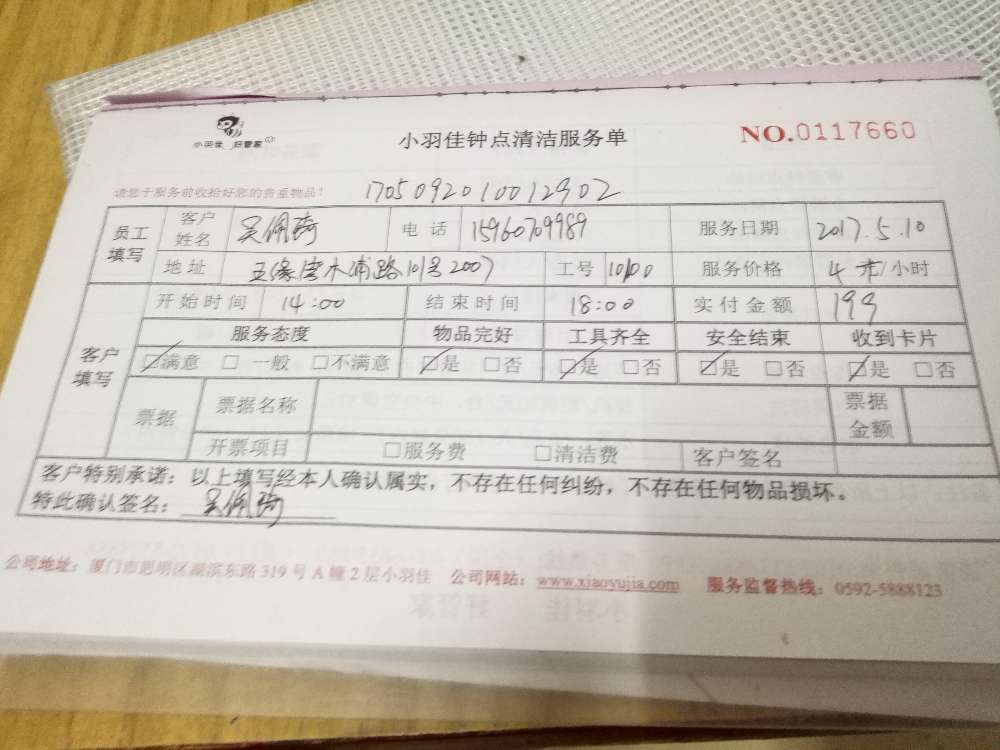 小羽佳 好管家
小羽佳钟点清洁服务单
NO.0117660
请您于服务前收拾好您的贵重物品!
1705092010012902
员工填写 客户姓名 吴佩琦 电话 15960709989 服务日期 2017.5.10
地址 五缘湾木浦路101号2007 工号 10100 服务价格 4 元/小时
客户填写 开始时间 14:00 结束时间 18:00 实付金额 199
服务态度 物品完好 工具齐全 安全结束 收到卡片
☑满意 □一般 □不满意 ☑是 □否 ☑是 □否 ☑是 □否 ☑是 □否
票据 票据名称 票据金额
开票项目 □服务费 □清洁费 客户签名
客户特别承诺：以上填写经本人确认属实，不存在任何纠纷，不存在任何物品损坏。
特此确认签名：吴佩琦
公司地址：厦门市思明区湖滨东路319号A幢2层小羽佳 公司网站：www.xiaoyujia.com 服务监督热线：0592-5888123